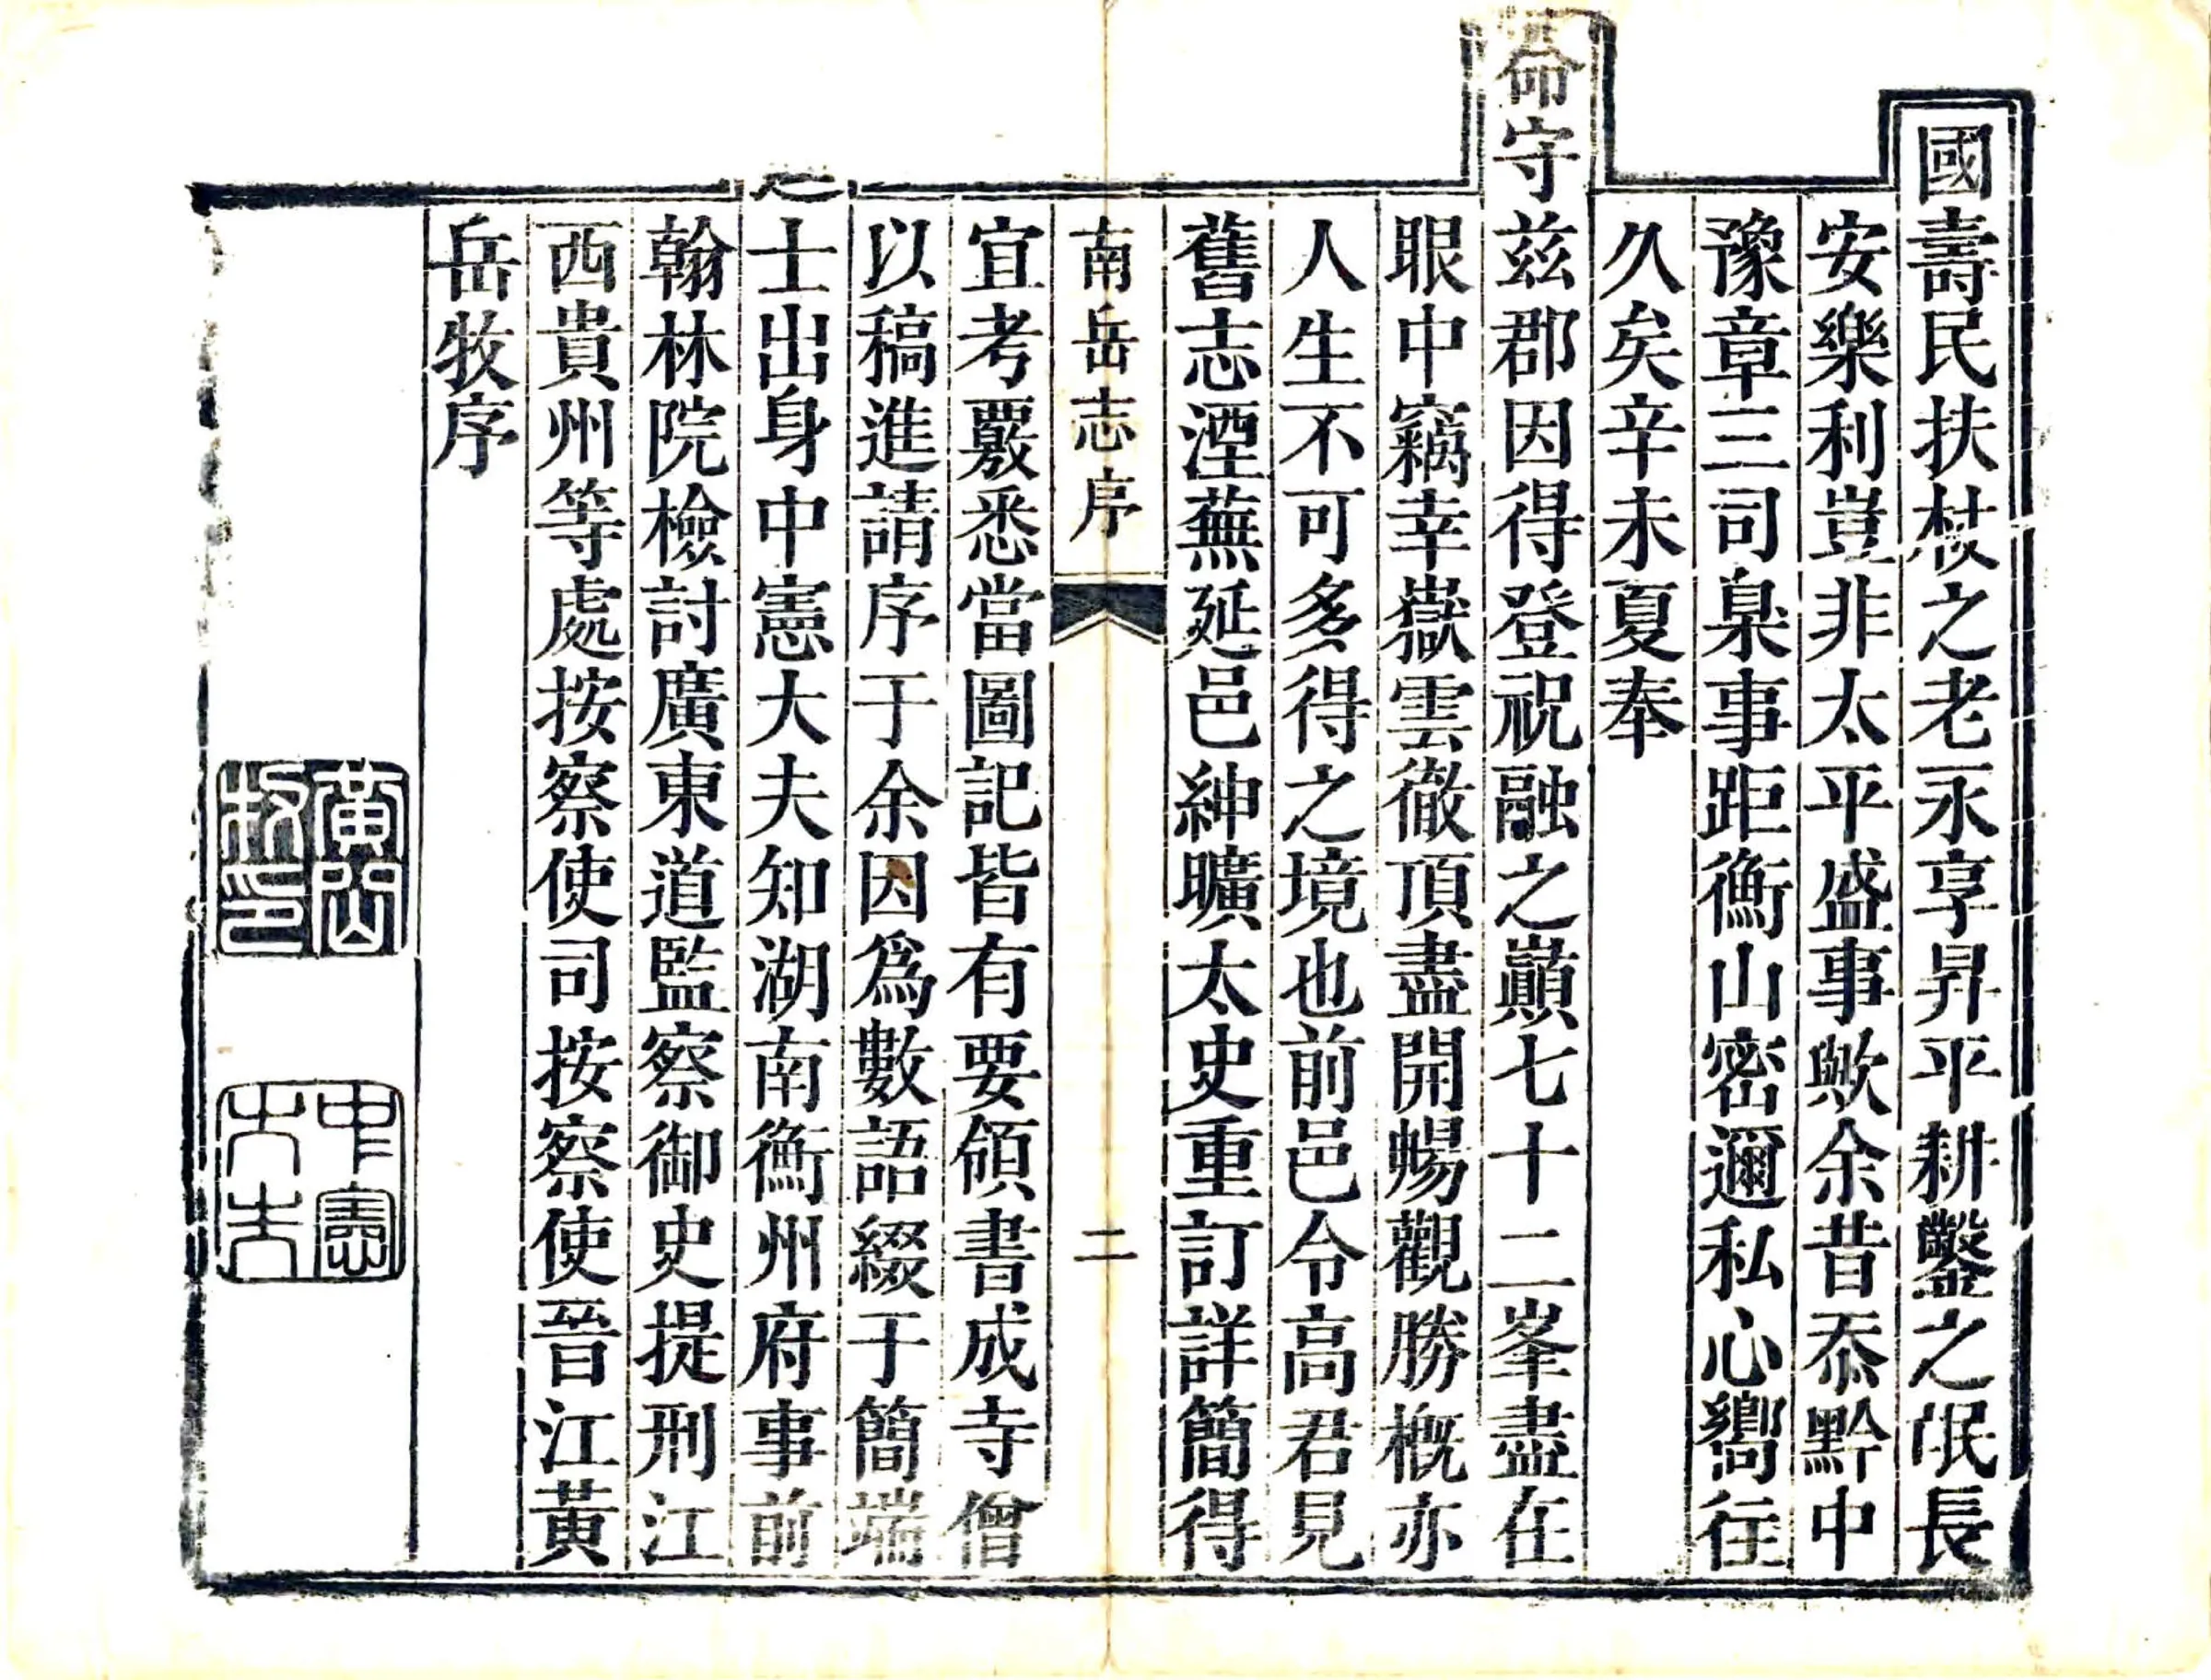 國壽民扶杖之老永享昇平耕鑿之氓長
安樂利豈非太平盛事歟余昔忝黔中
豫章三司臬事距衡山密邇私心嚮往
久矣辛未夏奉
命守茲郡因得登祝融之巔七十二峯盡在
眼中竊幸嶽雲徹頂盡開暢觀勝槪亦
人生不可多得之境也前邑令高君見
舊志湮蕪延邑紳曠太史重訂詳簡得
南岳志序
二
宜考覈悉當圖記皆有要領書成寺僧
以稿進請序于余因爲數語綴于簡端
士出身中憲大夫知湖南衡州府事前
翰林院檢討廣東道監察御史提刑江
西貴州等處按察使司按察使晉江黃
岳牧序
黃岳牧印
中憲大夫